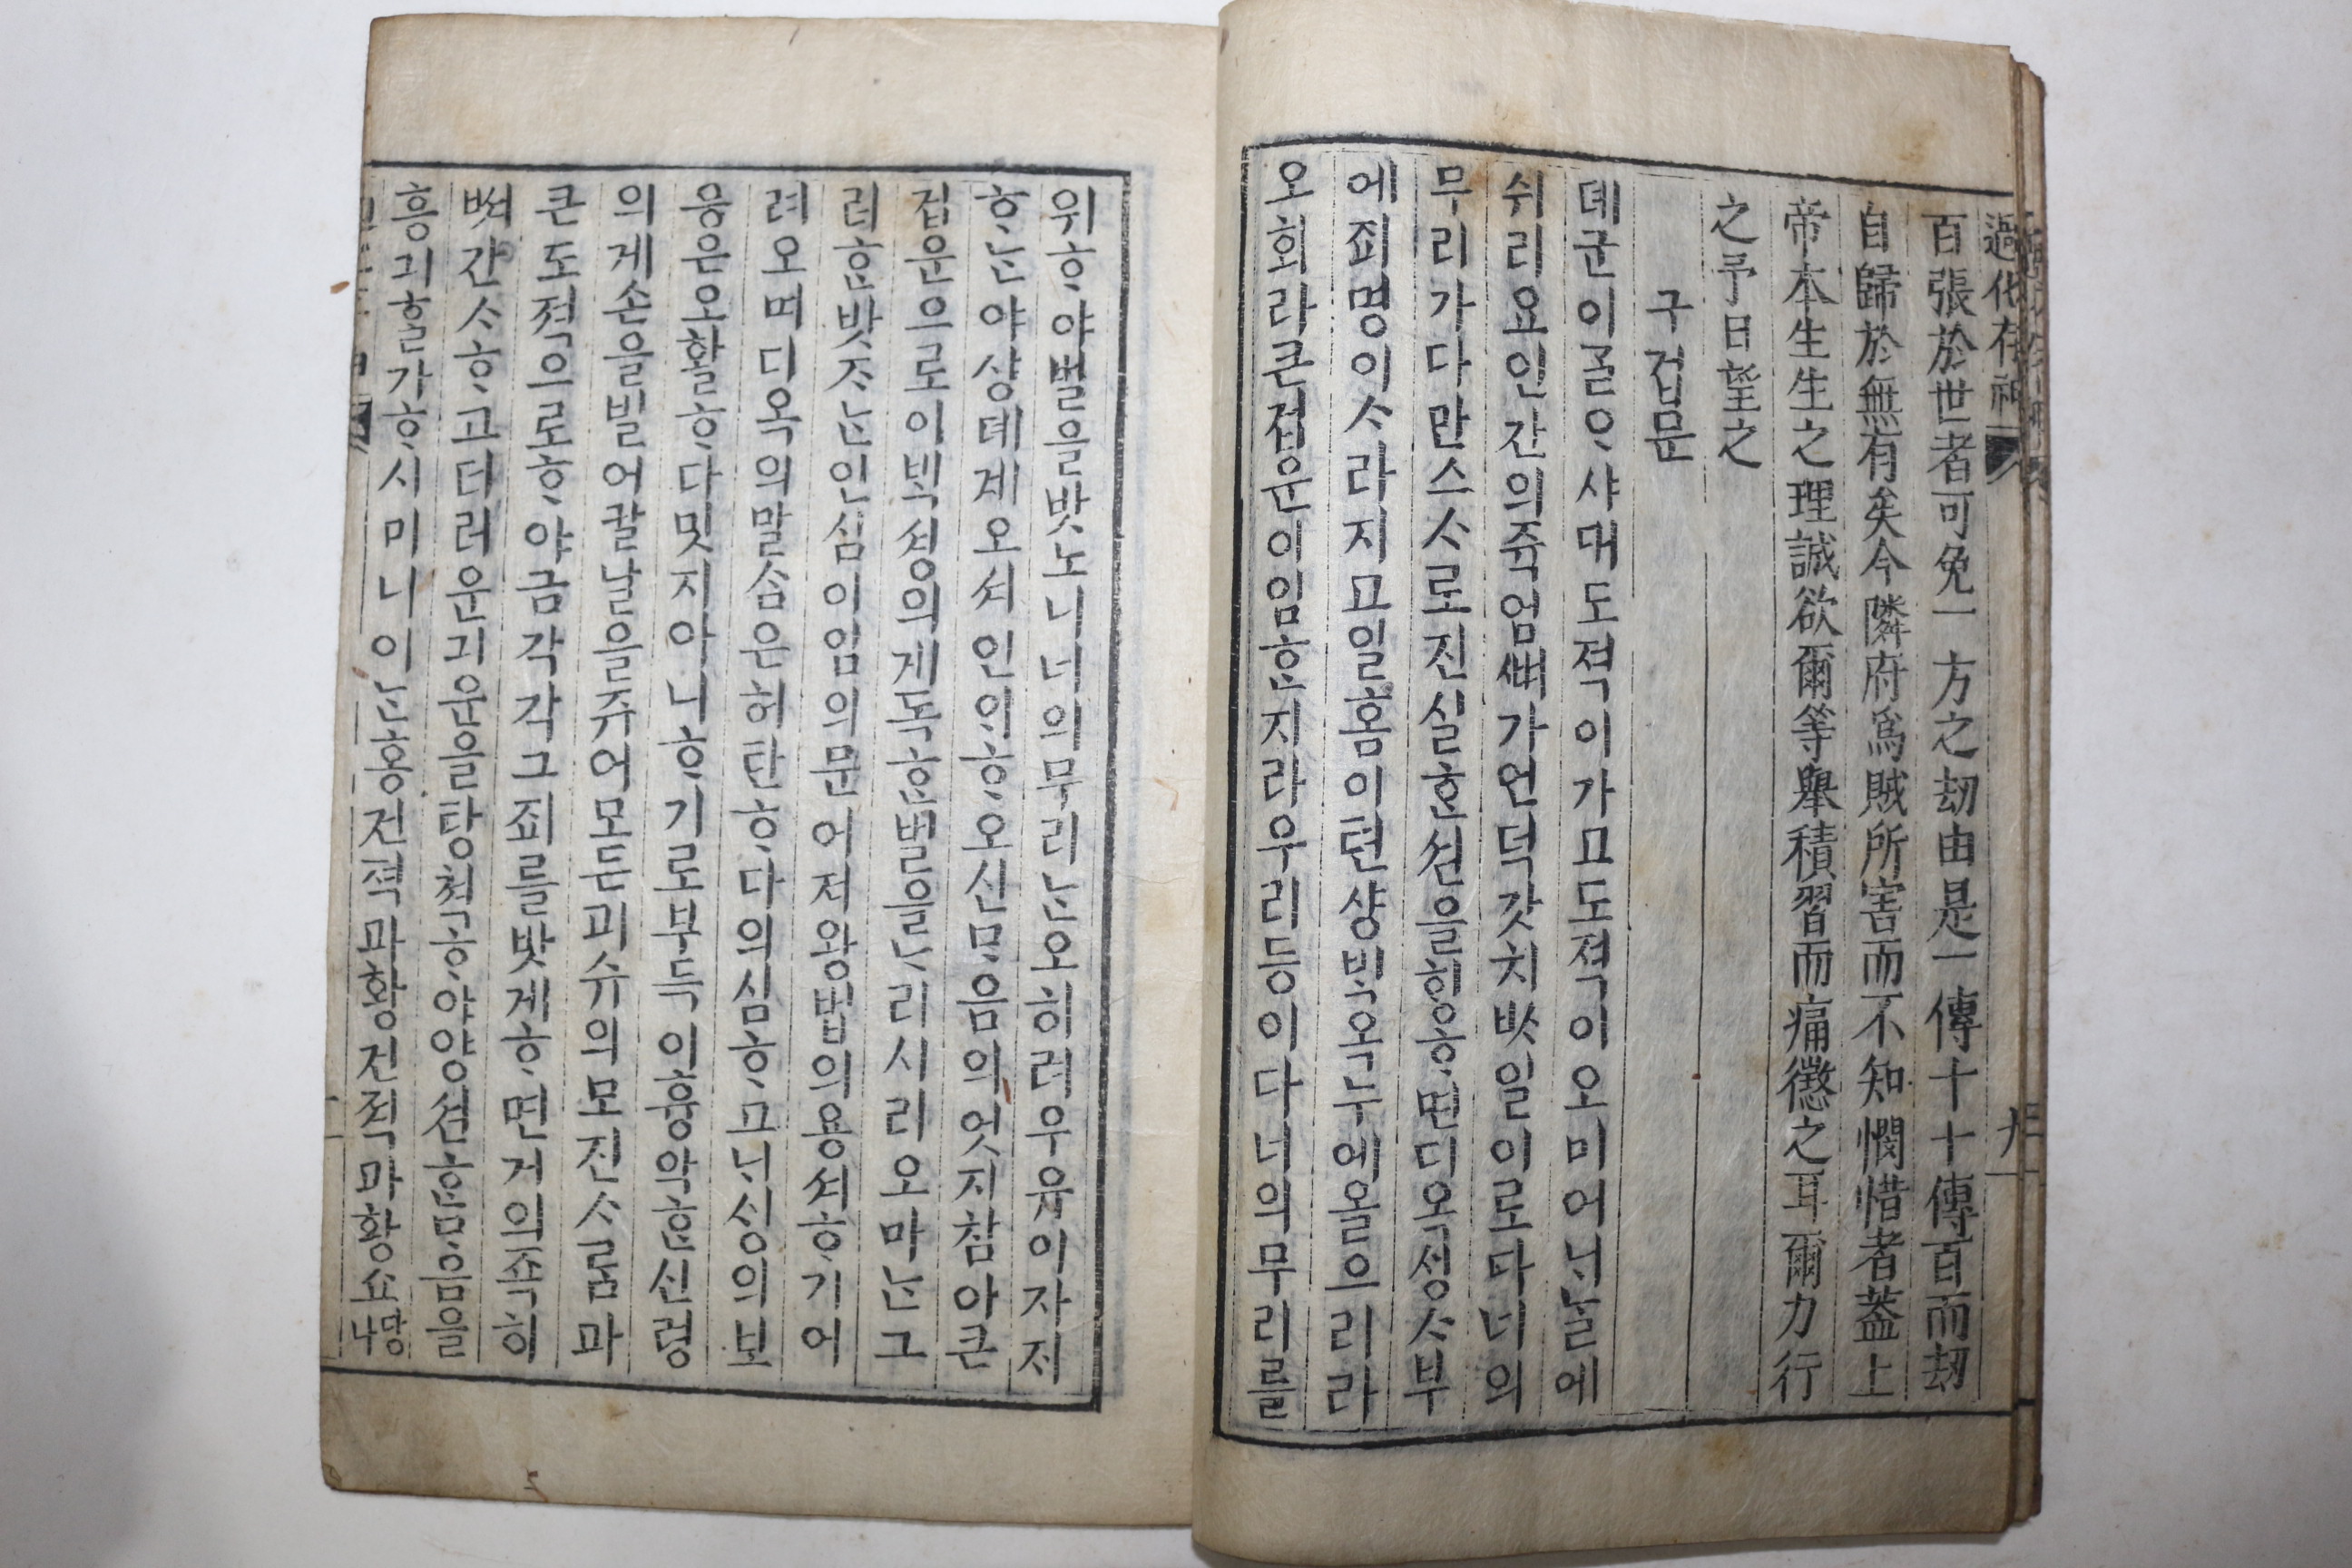 過化存神
百張於世者可免一方之刼由是一傳十十傳百而刼
自歸於無有矣今隣府爲賊所害而不知憫惜者蓋上
帝本生生之理誠欲爾等擧積習而痛懲之耳爾力行
之予日望之
구겁문
뎨군이ᄀᆞᆯᄋᆞ샤대도젹이가고도젹이오미어ᄂᆞ날에
쉬리요인간의쥭엄ᄲᅧ가언덕갓치ᄡᅡ일이로다너의
무리가다만스ᄉᆞ로진실ᄒᆞᆫ션을ᄒᆡᆼᄒᆞ면디옥셩ᄉᆞ부
에죄명이ᄉᆞ라지고일홈이텬샹ᄇᆡᆨ옥누에올으리라
오회라큰겁운이임ᄒᆞᆫ지라우리등이다너의무리를
위ᄒᆞ야벌을밧노니너의무리ᄂᆞᆫ오히려우유이자저
ᄒᆞᄂᆞᆫ야샹뎨계오셔인ᄋᆡᄒᆞ오신ᄆᆞ음의엇지참아큰
겁운으로이ᄇᆡᆨ셩의게독ᄒᆞᆫ벌을ᄂᆞ리시리오마ᄂᆞᆫ그
려ᄒᆞᆫ밧ᄌᆞᄂᆞᆫ인심이임의문어저왕법의용셔ᄒᆞ기어
려오며디옥의말ᄉᆞᆷ은허탄ᄒᆞ다의심ᄒᆞ고ᄂᆡᄉᆡᆼ의보
응은오활ᄒᆞ다밋지아니ᄒᆞ기로부득이흉악ᄒᆞᆫ신령
의게손을빌어칼날을쥬어모든괴슈의모진ᄉᆞᄅᆞᆷ과
큰도적으로ᄒᆞ야금각각그죄를밧게ᄒᆞ면거의죡히
ᄲᅧ간ᄉᆞᄒᆞ고더러운긔운을탕쳑ᄒᆞ야양션ᄒᆞᆫᄆᆞ음을
흥긔ᄒᆞᆯ가ᄒᆞ시미니이ᄂᆞᆫ홍건젹과황건적과황쇼망